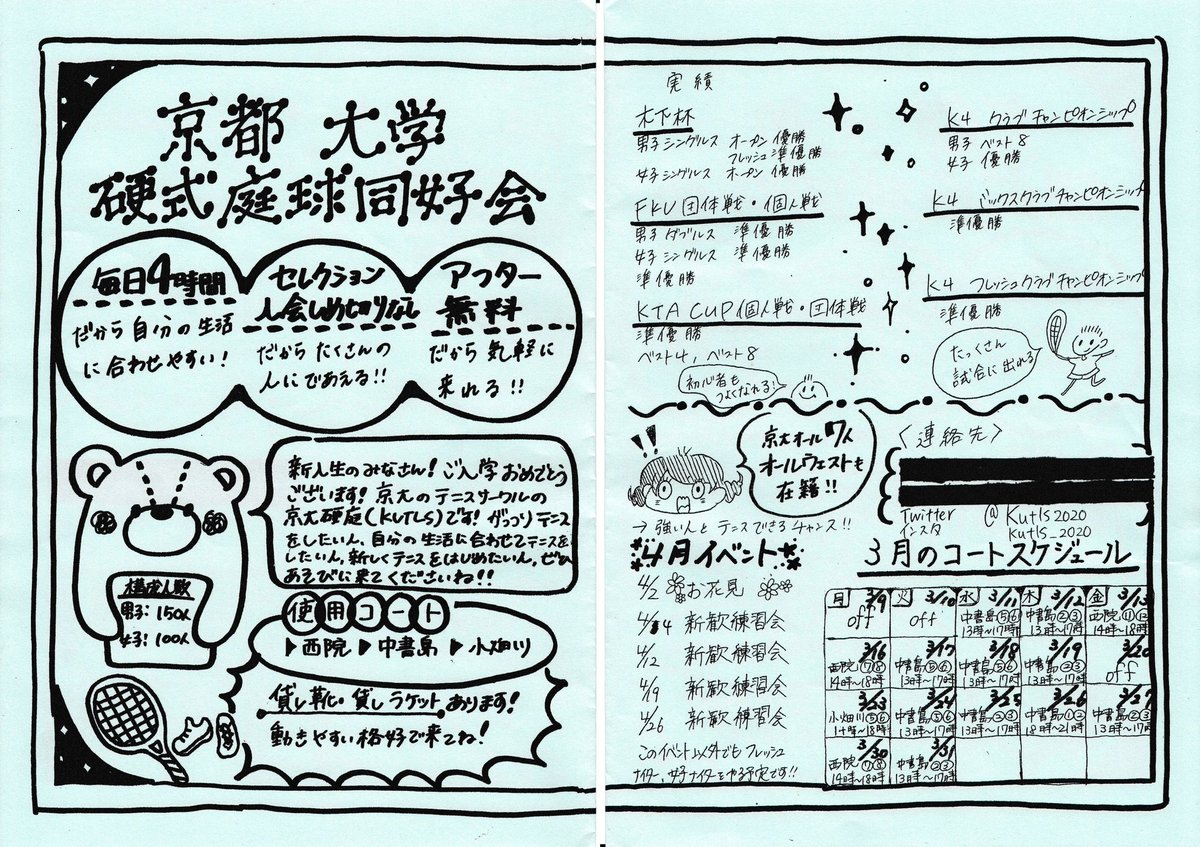 京都 大学
硬式庭球同好会
毎日4時間
だから自分の生活
に合わせやすい!
セレクション
入会しめきりなし
だから たくさんの
人にであえる!!
アフター
無料
だから 気軽に
来れる!!
新入生のみなさん!ご入学おめでとう
ございます!京大のテニスサークルの
京大硬庭(KUTLS)です!がっつりテニス
をしたい人、自分の生活に合わせてテニスを
したい人、新しくテニスをはじめたい人、ぜひ
あそびに来てくださいね!!
構成人数
男子:150人
女子:100人
使用コート
▶西院 ▶中書島 ▶小畑川
貸し靴・貸しラケットあります!
動きやすい格好で来てね!
実績
木下杯
男子シングルス オープン 優勝
フレッシュ 準優勝
女子シングルス オープン 優勝
FKU団体戦・個人戦
男子ダブルス 準優勝
女子シングルス 準優勝
準優勝
KTA CUP 個人戦・団体戦
準優勝
ベスト4, ベスト8
初心者も
つよくなれる!
K4 クラブチャンピオンシップ
男子 ベスト8
女子 優勝
K4 ミックスクラブチャンピオンシップ
準優勝
K4 フレッシュクラブチャンピオンシップ
準優勝
たっくさん
試合に出れる
!!
京大オール7人
オールウェストも
在籍!!
→強い人とテニスできるチャンス!!
<連絡先>
Twitter @Kutls2020
インスタ kutls_2020
4月イベント
4/2 お花見
4/4 新歓練習会
4/12 新歓練習会
4/19 新歓練習会
4/26 新歓練習会
このイベント以外でもフレッシュ
ナイター、女子ナイターをやる予定です!!
3月のコートスケジュール
月 3/9 火 3/10 水 3/11 木 3/12 金 3/13
off off 中書島⑤⑥ 中書島②③ 西院⑪⑫
13時~17時 13時~17時 14時~18時
3/16 3/17 3/18 3/19 3/20
西院⑦⑧ 中書島⑤⑥ 中書島⑤⑥ 中書島②③ off
14時~18時 13時~17時 13時~17時 13時~17時
3/23 3/24 3/25 3/26 3/27
小畑川⑤⑥ 中書島⑤⑥ 中書島②③ 中書島①② 中書島②③
14時~18時 13時~17時 13時~17時 18時~21時 13時~17時
3/30 3/31
西院⑦⑧ 中書島②③
14時~18時 13時~17時